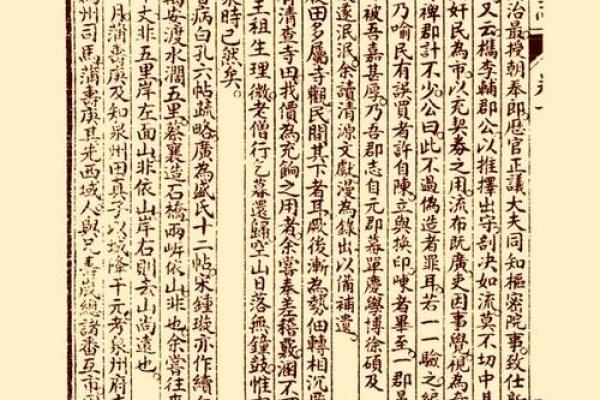 治最授朝奉郎歷官正議大夫同知樞密院事致仕
又云檇李輔郡公以推擇出守剖決如流莫不切中其
奸民為市以充契券之用流布既廣吏因事覺視為奇
稗郡計不少公曰此不過偽造者罪耳若一一驗之
乃喻民有誤買者許自陳立與換印陳者畢至一郡
被吾嘉甚厚乃吾郡志自元郡幕單慶學博徐碩及
遂泯泯余讀清源文獻漫為錄出以備補遺
田多屬寺觀民間其下者耳厥後漸為勢佃轉相沉
清查寺田找價為充餉之用者余嘗奉差稽覈涸不
王祖生理微老僧行乞暮還歸空山日落無鐘鼓惟
時已然矣
病白孔六帖疏略廣為盛氏十二帖宋鍾璇亦作續
萬安渡水濶五里蔡襄造石橋兩岸依山非也余嘗往
丈非五里岸左面山非依山岸右則去山尚遠也
月蒲壽庚及知泉州田真子以城降于元考泉州府
州司馬蒲壽庚其先西域人與兄壽宬總諸番互市